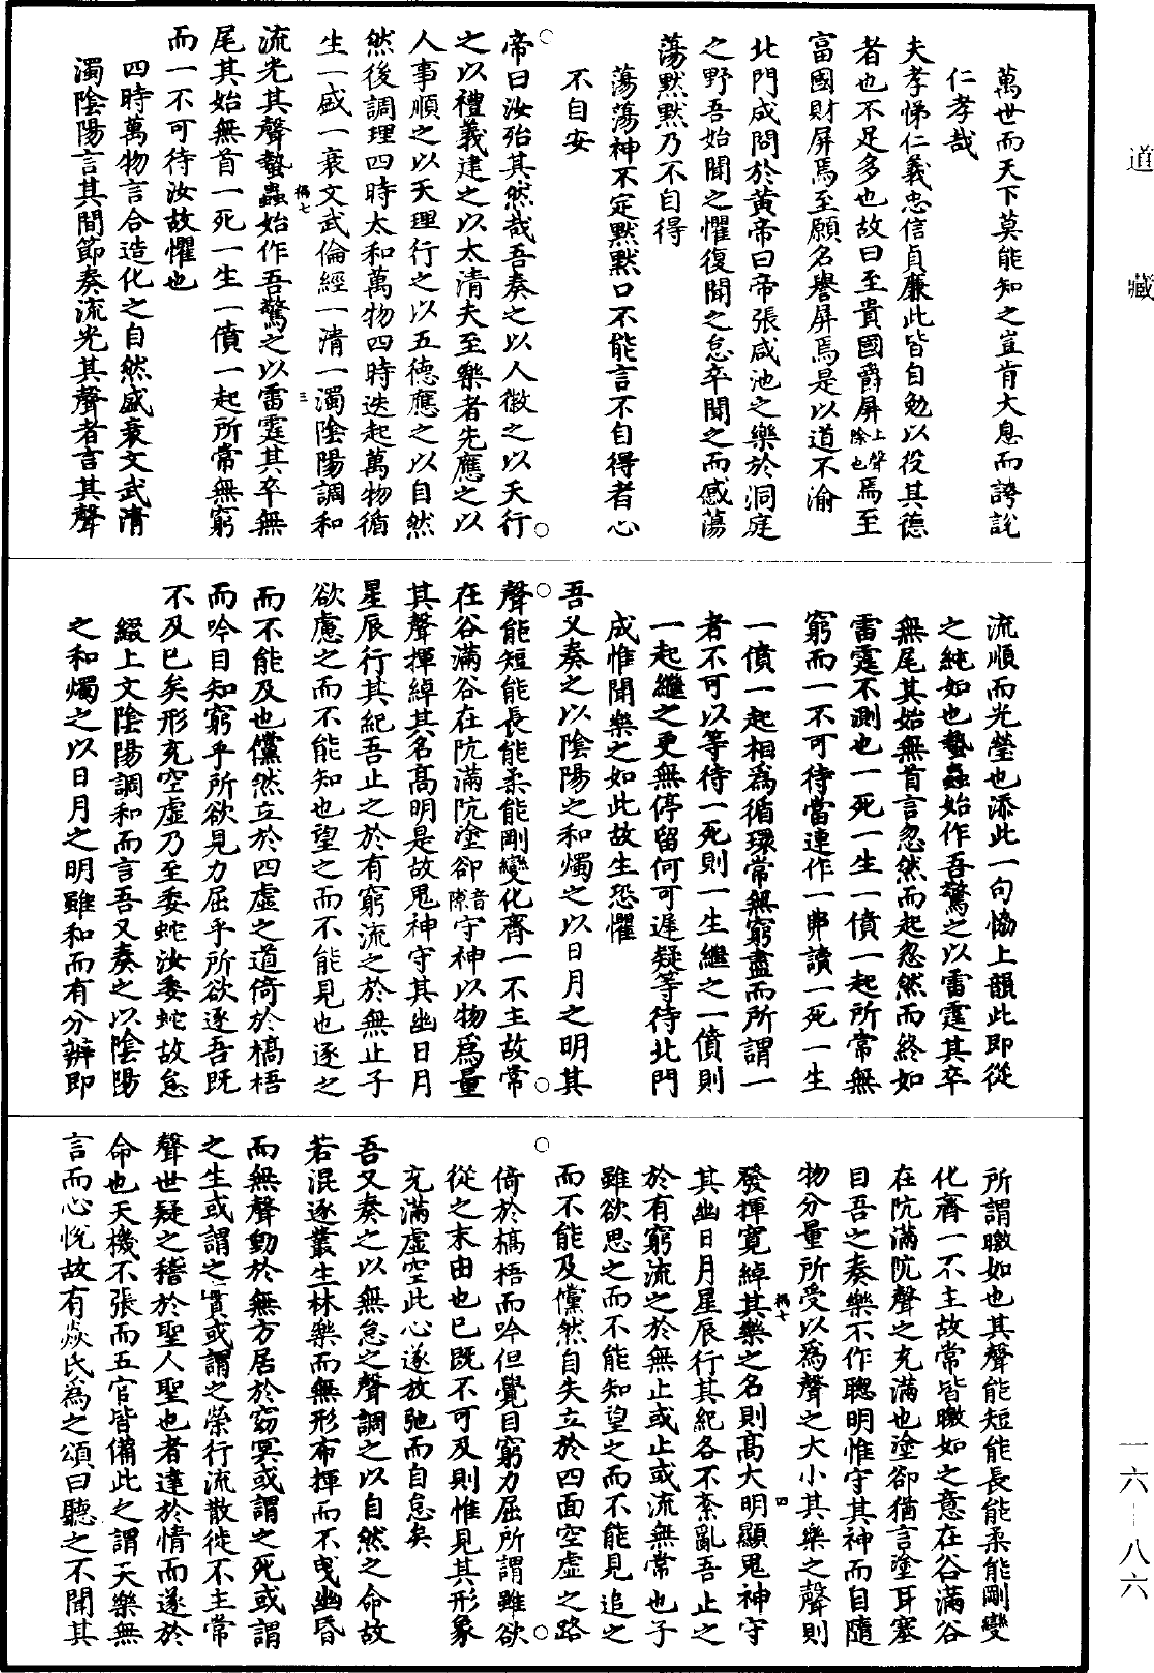 道藏
萬世而天下莫能知之豈肯大息而誇說
仁孝哉
夫孝悌仁義忠信貞廉此皆自勉以役其德
者也不足多也故曰至貴國爵屏上聲除也焉至
富國財屏焉至願名譽屏焉是以道不渝
北門成問於黃帝曰帝張咸池之樂於洞庭
之野吾始聞之懼復聞之怠卒聞之而惑蕩
蕩默默乃不自得
蕩蕩神不定默默口不能言不自得者心
不自安
帝曰汝殆其然哉吾奏之以人徽之以天行
之以禮義建之以太清夫至樂者先應之以
人事順之以天理行之以五德應之以自然
然後調理四時太和萬物四時迭起萬物循
生一盛一衰文武倫經一清一濁陰陽調和
稱七 三
流光其聲蟄蟲始作吾驚之以雷霆其卒無
尾其始無首一死一生一僨一起所常無窮
而一不可待汝故懼也
四時萬物言合造化之自然盛衰文武清
濁陰陽言其間節奏流光其聲者言其聲
流順而光瑩也添此一句恊上韻此即從
之純如也蟄蟲始作吾驚之以雷霆其卒
無尾其始無首言忽然而起忽然而終如
雷霆不測也一死一生一僨一起所常無
窮而一不可待當連作一串讀一死一生
一僨一起相爲循環常無窮盡而所謂一
者不可以等待一死則一生繼之一僨則
一起繼之更無停留何可遲疑等待北門
成惟聞樂之如此故生恐懼
吾又奏之以陰陽之和燭之以日月之明其
聲能短能長能柔能剛變化齊一不主故常
在谷滿谷在阬滿阬塗卻音隙守神以物爲量
其聲揮綽其名高明是故鬼神守其幽日月
星辰行其紀吾止之於有窮流之於無止子
欲慮之而不能知也望之而不能見也逐之
而不能及也儻然立於四虛之道倚於槁梧
而吟目知窮乎所欲見力屈乎所欲逐吾既
不及已矣形充空虛乃至委蛇汝委蛇故怠
綴上文陰陽調和而言吾又奏之以陰陽
之和燭之以日月之明雖和而有分辨即
所謂皦如也其聲能短能長能柔能剛變
化齊一不主故常皆皦如之意在谷滿谷
在阬滿阬聲之充滿也塗卻猶言塗耳塞
目吾之奏樂不作聰明惟守其神而自隨
物分量所受以爲聲之大小其樂之聲則
稱七 四
發揮寛綽其樂之名則高大明顯鬼神守
其幽日月星辰行其紀各不紊亂吾止之
於有窮流之於無止或止或流無常也子
雖欲思之而不能知望之而不能見追之
而不能及儻然自失立於四面空虛之路
倚於槁梧而吟但覺目窮力屈所謂雖欲
從之末由也已既不可及則惟見其形象
充滿虛空此心遂放弛而自怠矣
吾又奏之以無怠之聲調之以自然之命故
若混逐叢生林樂而無形布揮而不曳幽昏
而無聲動於無方居於窈冥或謂之死或謂
之生或謂之實或謂之榮行流散徙不主常
聲世疑之稽於聖人聖也者達於情而遂於
命也天機不張而五官皆備此之謂天樂無
言而心悅故有焱氏爲之頌曰聽之不聞其
一六-八六